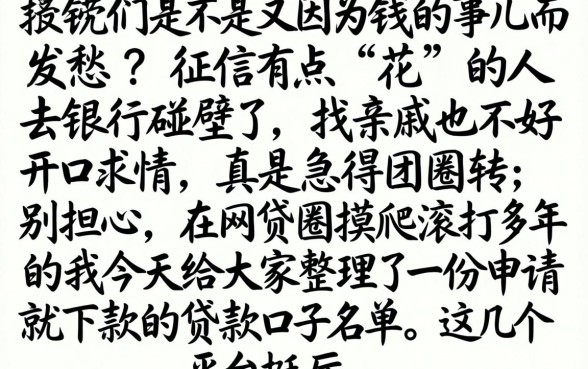 们是不是又因为钱的事儿而
发愁？征信有点“花”的人
去银行碰壁了，找亲戚也不好
开口求情，真是急得团圈转；
别担心，在网贷圈摸爬滚打多年
的我今天给大家整理了一份申请
就下款的贷款口子名单。这几个
平台